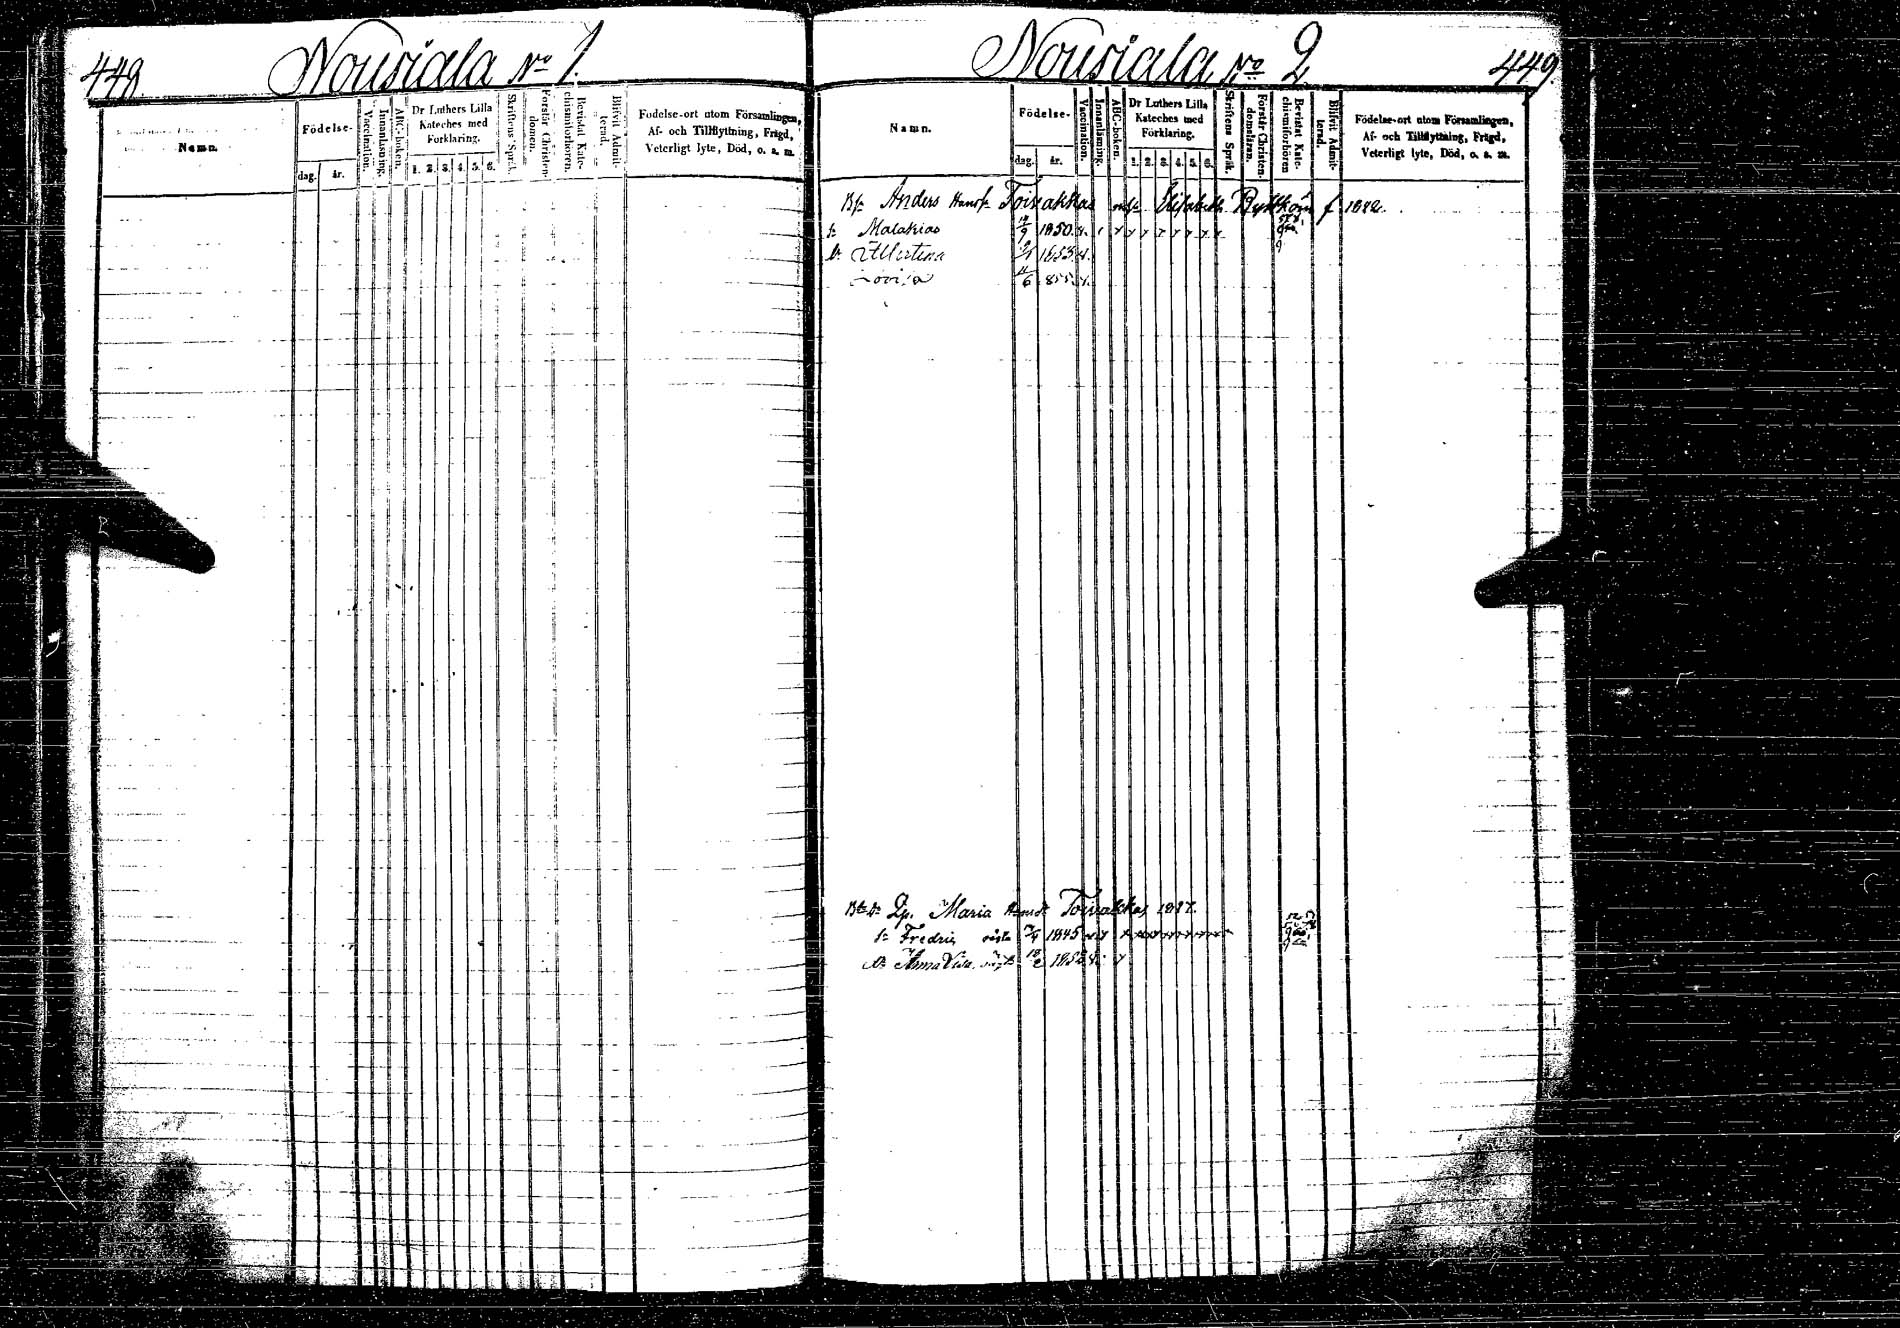 448.
Nousiala No 1.
Namn.
Födelse-
dag.
år.
Vaccination.
Innanläsning.
ABC-boken.
Dr Luthers Lilla
Kateches med
Förklaring.
1. 2. 3. 4. 5. 6.
Skriftens Språk.
Förstår Christen-
domen.
Bevistat Kate-
chismiförhören.
Blifvit Admit-
terad.
Födelse-ort utom Församlingen,
Af- och Tillflyttning, Frägd,
Veterligt lyte, Död, o. s. m.
Nousiala No 2
449
Namn.
Födelse-
dag.
år.
Vaccination.
Innanläsning.
ABC-boken.
Dr Luthers Lilla
Kateches med
Förklaring.
1. 2. 3. 4. 5. 6.
Skriftens Språk.
Förstår Christen-
domsläran.
Bevistat Kate-
chismiförhören
Blifvit Admit-
terad.
Födelse-ort utom Församlingen,
Af- och Tillflyttning, Frägd,
Veterligt lyte, Död, o. s. m.
Anders Hanss. Toivakka Elisabeth f 1842.
Malakias 1850
Albertina 1853
Lovisa 855
Maria Toivakka 1817.
Fredric 1845
Anna Lisa 1852